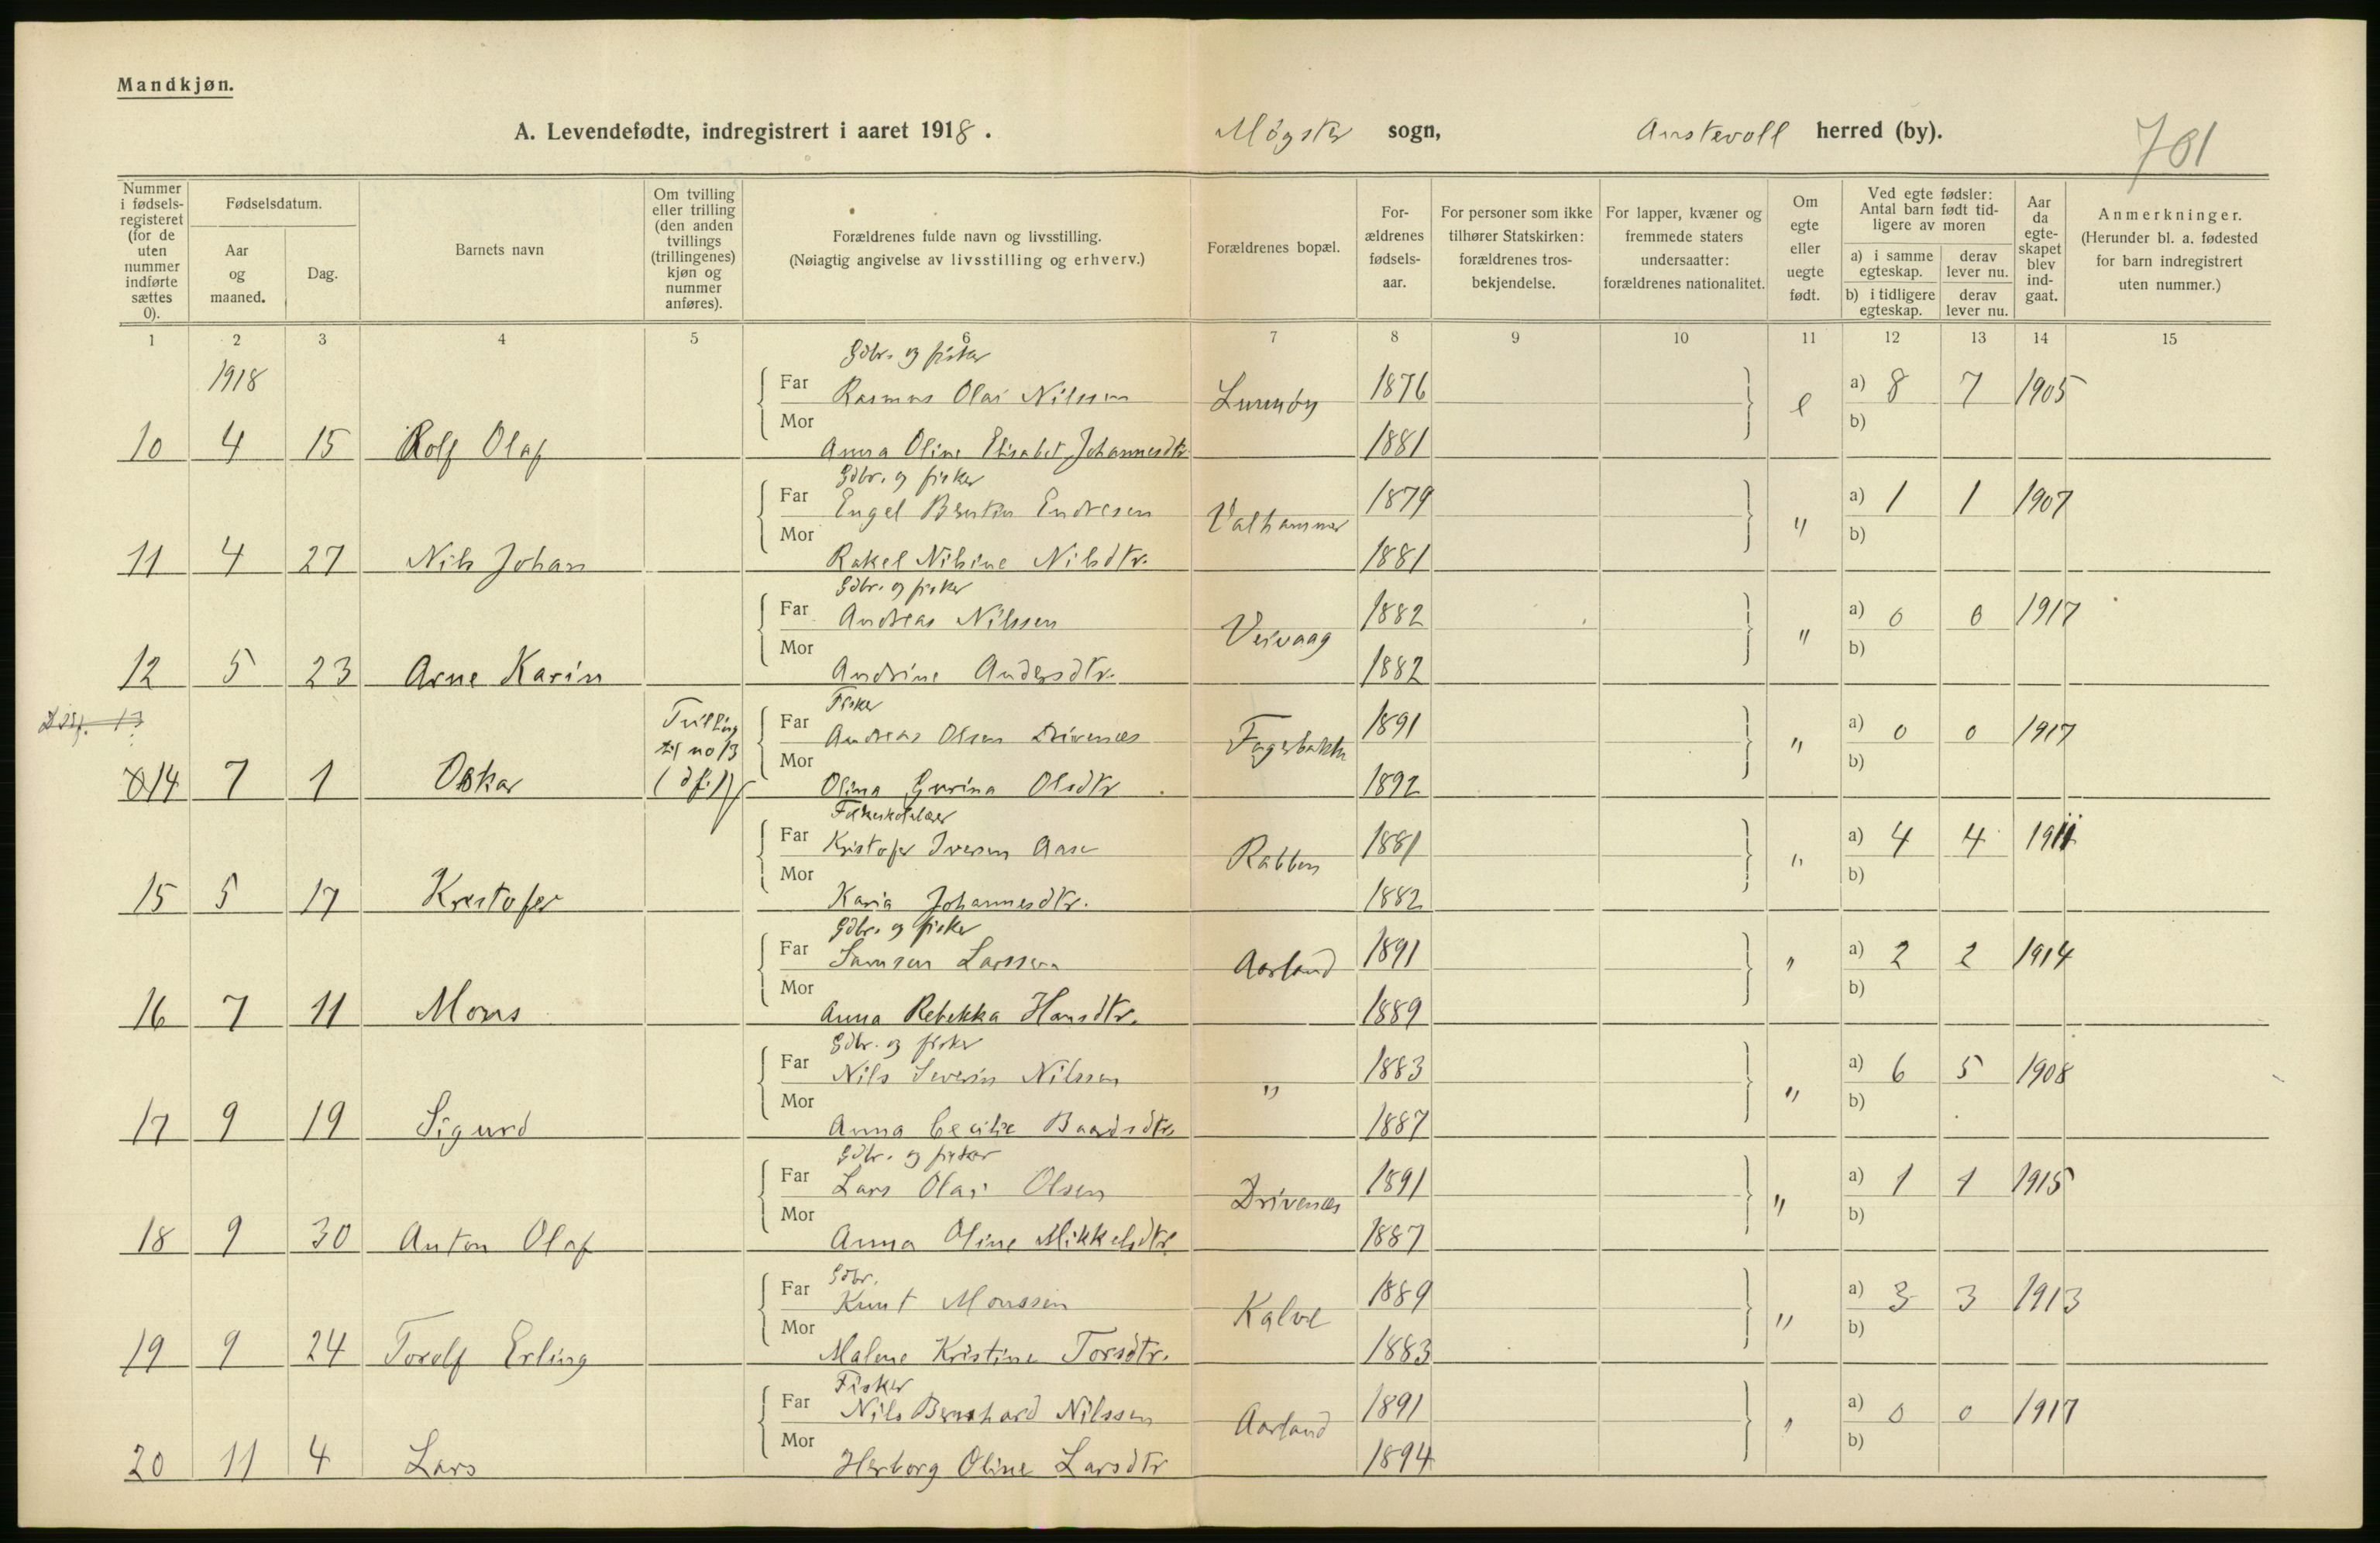 Mandkjøn.
A. Levendefødte, indregistrert i aaret 1918. Møgster sogn, Austevoll herred (by). 701
Nummer i fødselsregisteret (for de uten nummer indførte sættes 0).
Fødselsdatum.
Aar og maaned.
Dag.
Barnets navn
Om tvilling eller trilling (den anden tvillings (trillingenes) kjøn og nummer anføres).
Forældrenes fulde navn og livsstilling.
(Nøiagtig angivelse av livsstilling og erhverv.)
Forældrenes bopæl.
Forældrenes fødselsaar.
For personer som ikke tilhører Statskirken: forældrenes trosbekjendelse.
For lapper, kvæner og fremmede staters undersaatter: forældrenes nationalitet.
Om egte eller uegte født.
Ved egte fødsler: Antal barn født tidligere av moren
a) i samme egteskap. derav lever nu.
b) i tidligere egteskap. derav lever nu.
Aar da egteskapet blev indgaat.
Anmerkninger.
(Herunder bl. a. fødested for barn indregistrert uten nummer.)
1 2 3 4 5 6 7 8 9 10 11 12 13 14 15
1918
Gdbr. og fisker
Far Rasmus Olai Nilssen 1876 a) 8 7 1905
Mor Lunnøy e b)
10 4 15 Rolf Olaf Anna Oline Elisabet Johannesdtr 1881
Gdbr. og fisker
Far Engel Bentin Endresen 1879 a) 1 1 1907
Mor Valhammer " b)
11 4 27 Nils Johan Rakel Nilsine Nilsdtr. 1881
Gdbr. og fisker
Far Andreas Nilssen 1882 a) 0 0 1917
Mor Veivaag " b)
12 5 23 Arne Karin Andrine Andersdtr. 1882
Fisker
Tvilling
Far Andreas Olsen Drivenes 1891 a) 0 0 1917
til no 13
Mor Fagerbakken " b)
14 7 1 Oskar Olina Gurina Olsdtr 1892
Folkeskolelærer
Far Kristofer Iversen Aase 1881 a) 4 4 1911
Mor Rabben " b)
15 5 17 Krestofer Karia Johannesdtr. 1882
Gdbr. og fisker
Far Samson Larssen 1891 a) 2 2 1914
Mor Aarland " b)
16 7 11 Mons Anna Rebekka Hansdtr. 1889
Gdbr. og fisker
Far Nils Severin Nilssen 1883 a) 6 5 1908
Mor " " b)
17 9 19 Sigurd Anna Cecilie Baardsdtr. 1887
Gdbr. og fisker
Far Lars Olai Olsen 1891 a) 1 1 1915
Mor Drivenes " b)
18 9 30 Anton Olaf Anna Oline Mikkelsdtr 1887
Gdbr.
Far Knut Monssen 1889 a) 3 3 1913
Mor Kalve " b)
19 9 24 Torolf Erling Malene Kristine Torsdtr. 1883
Fisker
Far Nils Bernhard Nilssen 1891 a) 0 0 1917
Mor Aarland " b)
20 11 4 Lars Herborg Oline Larsdtr 1894